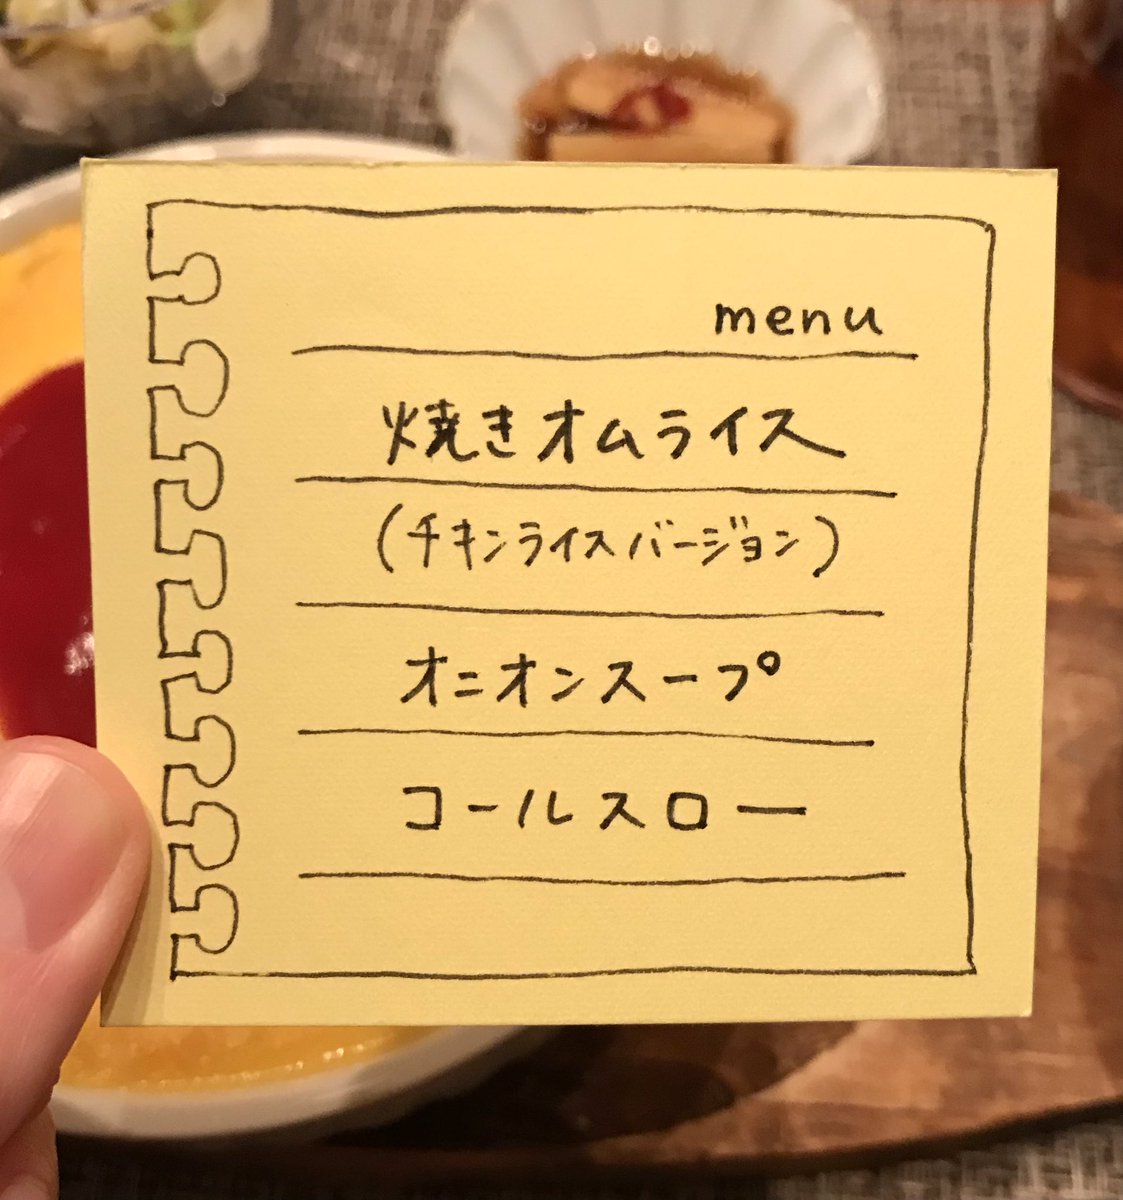 menu
焼きオムライス
(チキンライスバージョン)
オニオンスープ
コールスロー